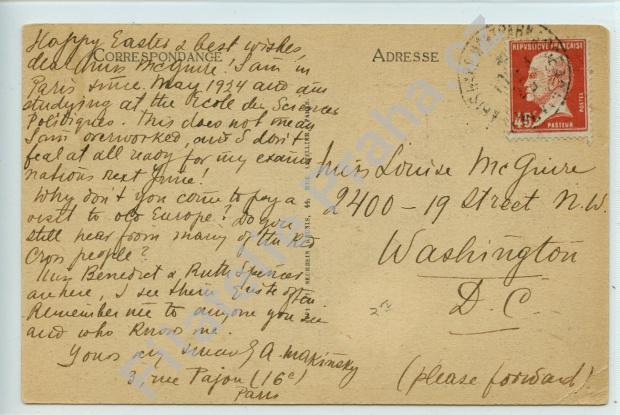 CORRESPONDANCE
ADRESSE
Happy Easter & best wishes,
dear Miss McGuire! I am in
Paris since May 1924 and am
studying at the Ecole des Sciences
Politiques. This does not mean
I am overworked, and I don't
feal at all ready for my exami
nations next June!
Why don't you come to pay a
visit to old Europe? Do you
still hear from many of the Red
Cross people?
Miss Benedict & Ruth Spencer
are here, I see them quite often.
Remember me to anyone you see
and who knows me.
Yours very sincerely A. Makinsky
3, rue Pajou (16e)
Paris
REPUBLIQUE FRANÇAISE
45c
POSTES
PASTEUR
Miss Louise McGuire
2400 - 19 Street N.W.
Washington
D.C.
(please forward)
Filatelie Praha.cz